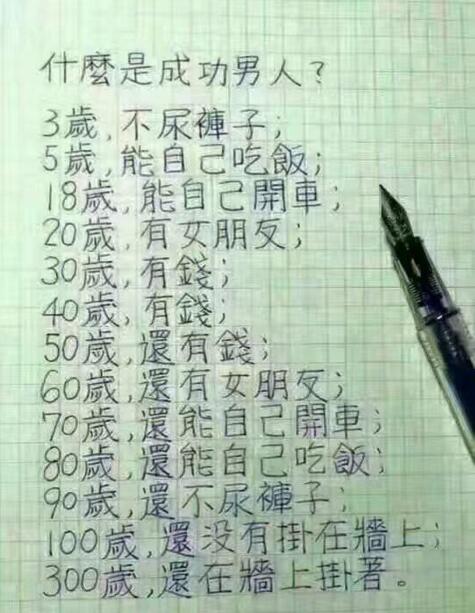 什麼是成功男人?
3歲,不尿褲子;
5歲,能自己吃飯;
18歲,能自己開車;
20歲,有女朋友;
30歲,有錢;
40歲,有錢;
50歲,還有錢;
60歲,還有女朋友;
70歲,還能自己開車;
80歲,還能自己吃飯;
90歲,還不尿褲子;
100歲,還没有掛在牆上;
300歲,還在牆上掛著。